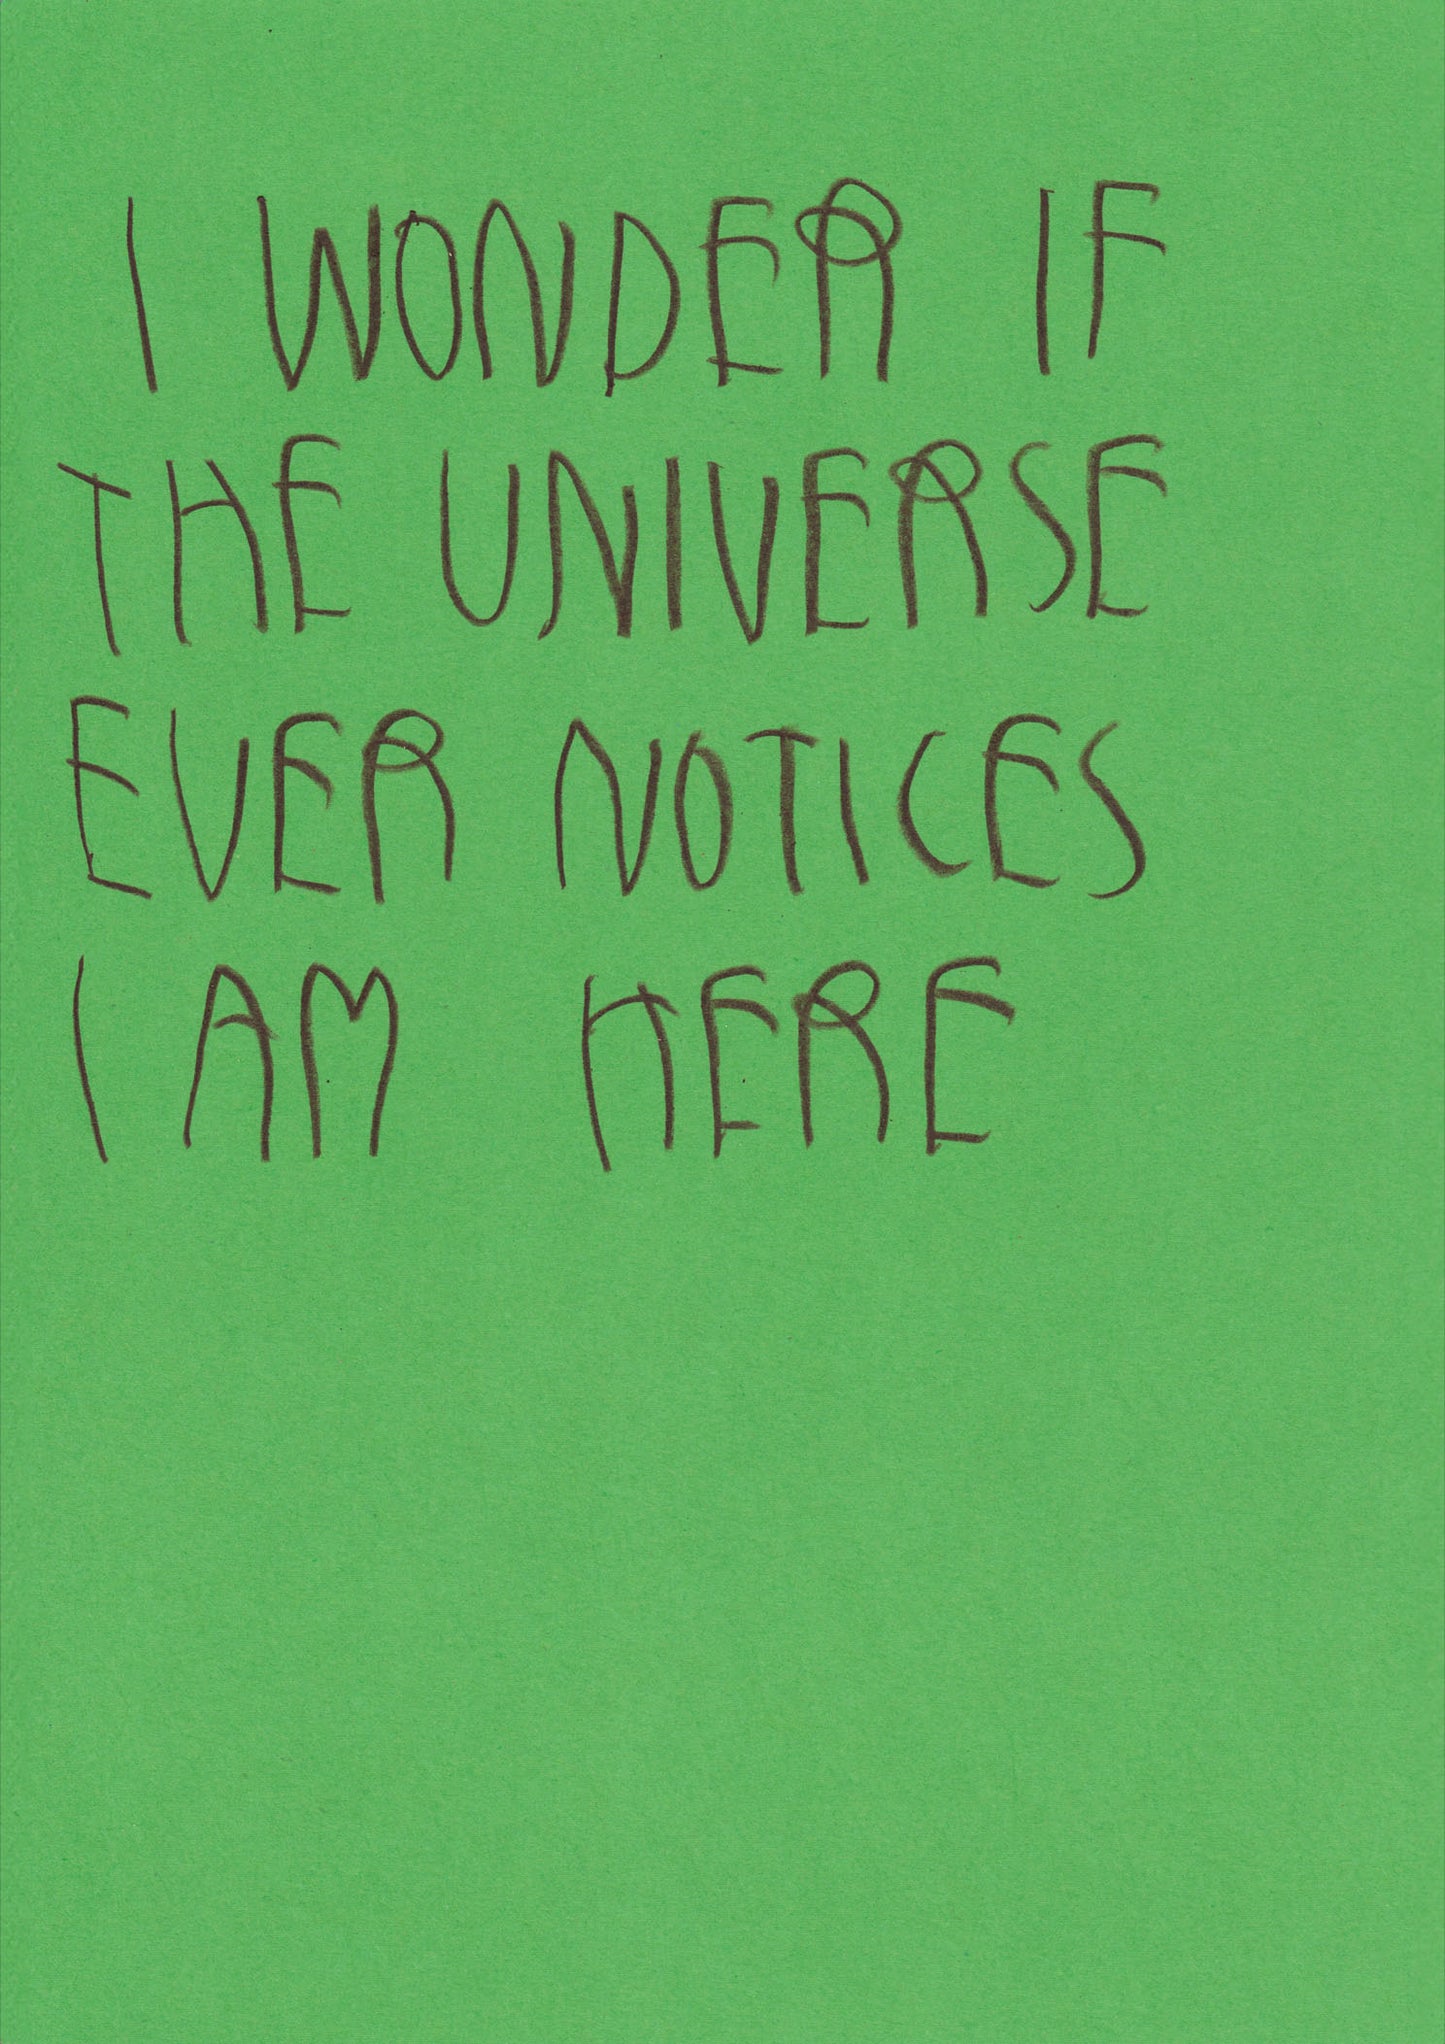 I WONDER IF
THE UNIVERSE
EVER NOTICES
I AM HERE